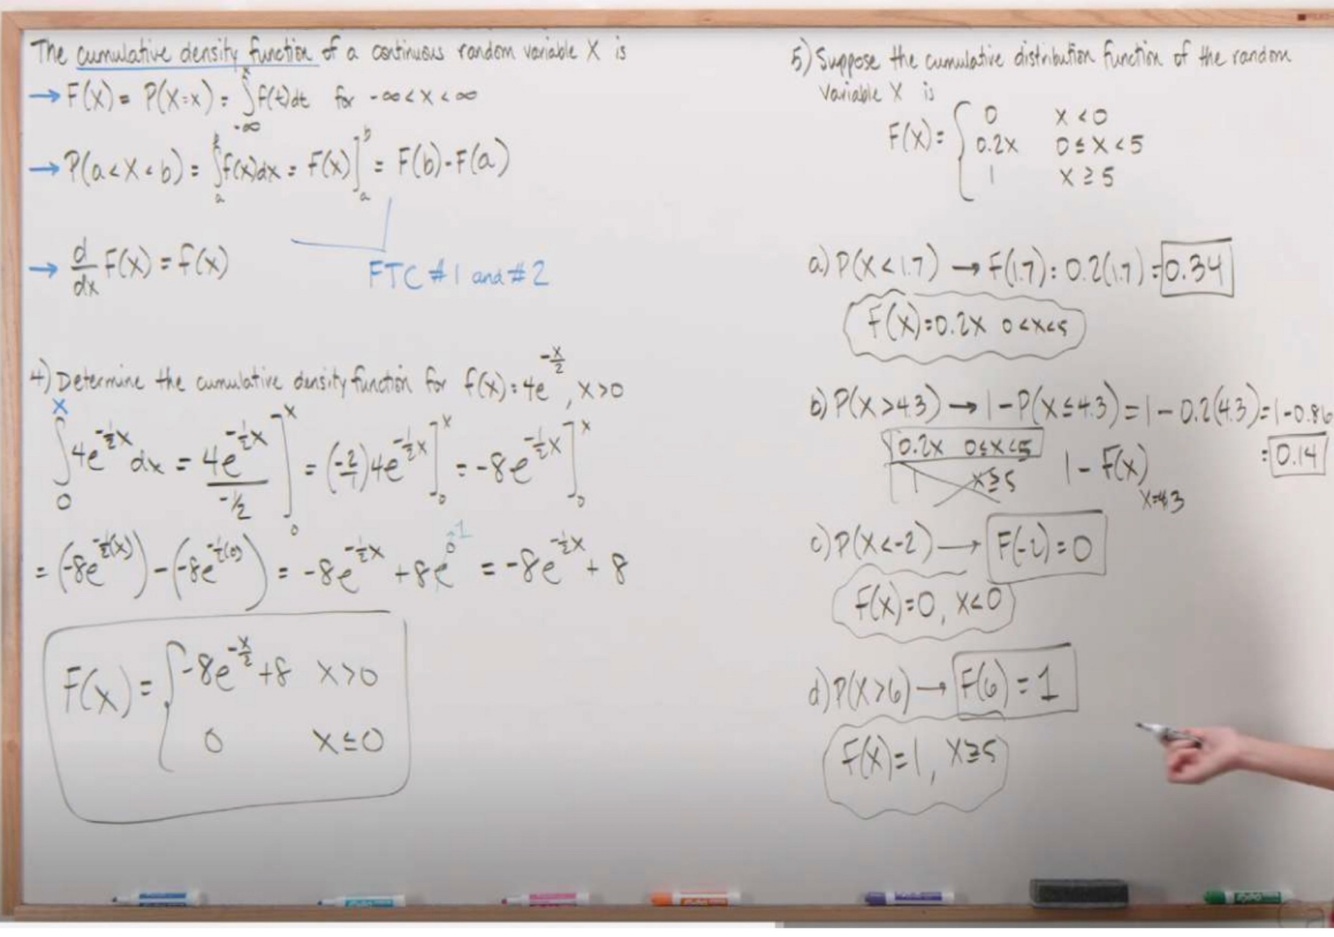 The cumulative density function of a continuous random variable X is
→ F(x) = P(X=x) = ∫_{-∞}^{x} f(t)dt for -∞<x<∞
→ P(a<X<b) = ∫_{a}^{b} f(x)dx = F(x)]_{a}^{b} = F(b)-F(a)
→ d/dx F(x) = f(x)
FTC #1 and #2
4) Determine the cumulative density function for f(x)=4e^{-x/2}, x>0
∫_{0}^{x} 4e^{-½x} dx = 4e^{-½x}/-½ ]_{0}^{x} = (-2/1)4e^{-½x}]_{0}^{x} = -8e^{-½x}]_{0}^{x}
= (-8e^{-½(x)}) - (-8e^{-½(0)}) = -8e^{-½x} + 8e^{0} = -8e^{-½x} + 8
1
F(x) = { -8e^{-x/2}+8 x>0
0 x≤0
5) Suppose the cumulative distribution function of the random
variable X is
F(x) = { 0 x<0
0.2x 0≤x<5
1 x≥5
a) P(X<1.7) → F(1.7) = 0.2(1.7) = 0.34
F(x)=0.2x 0<x<5
b) P(X>4.3) → 1-P(X≤4.3) = 1-0.2(4.3) = 1-0.86
0.2x 0≤x<5
1 x≥5
1 - F(x)
x=4.3
= 0.14
c) P(X<-2) → F(-2) = 0
F(x)=0, x<0
d) P(X>6) → F(6) = 1
F(x)=1, x≥5